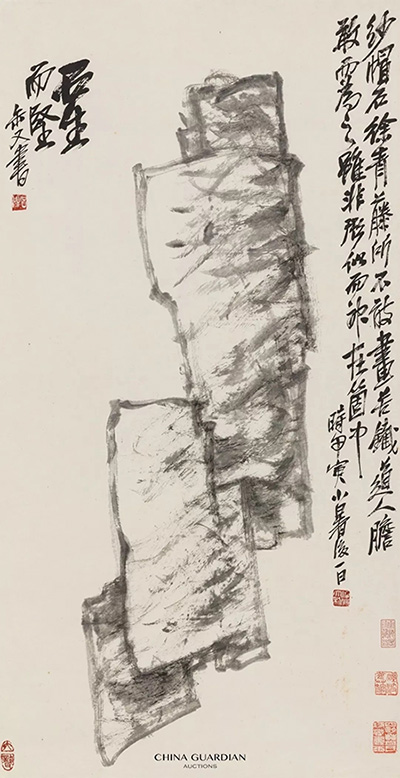 紗帽石徐青藤所不敢畫苦鐵道人膽
敢為之雖非形似而神在箇中
時甲寅小暑後一日
而堅
缶又書
CHINA GUARDIAN
AUCTIONS